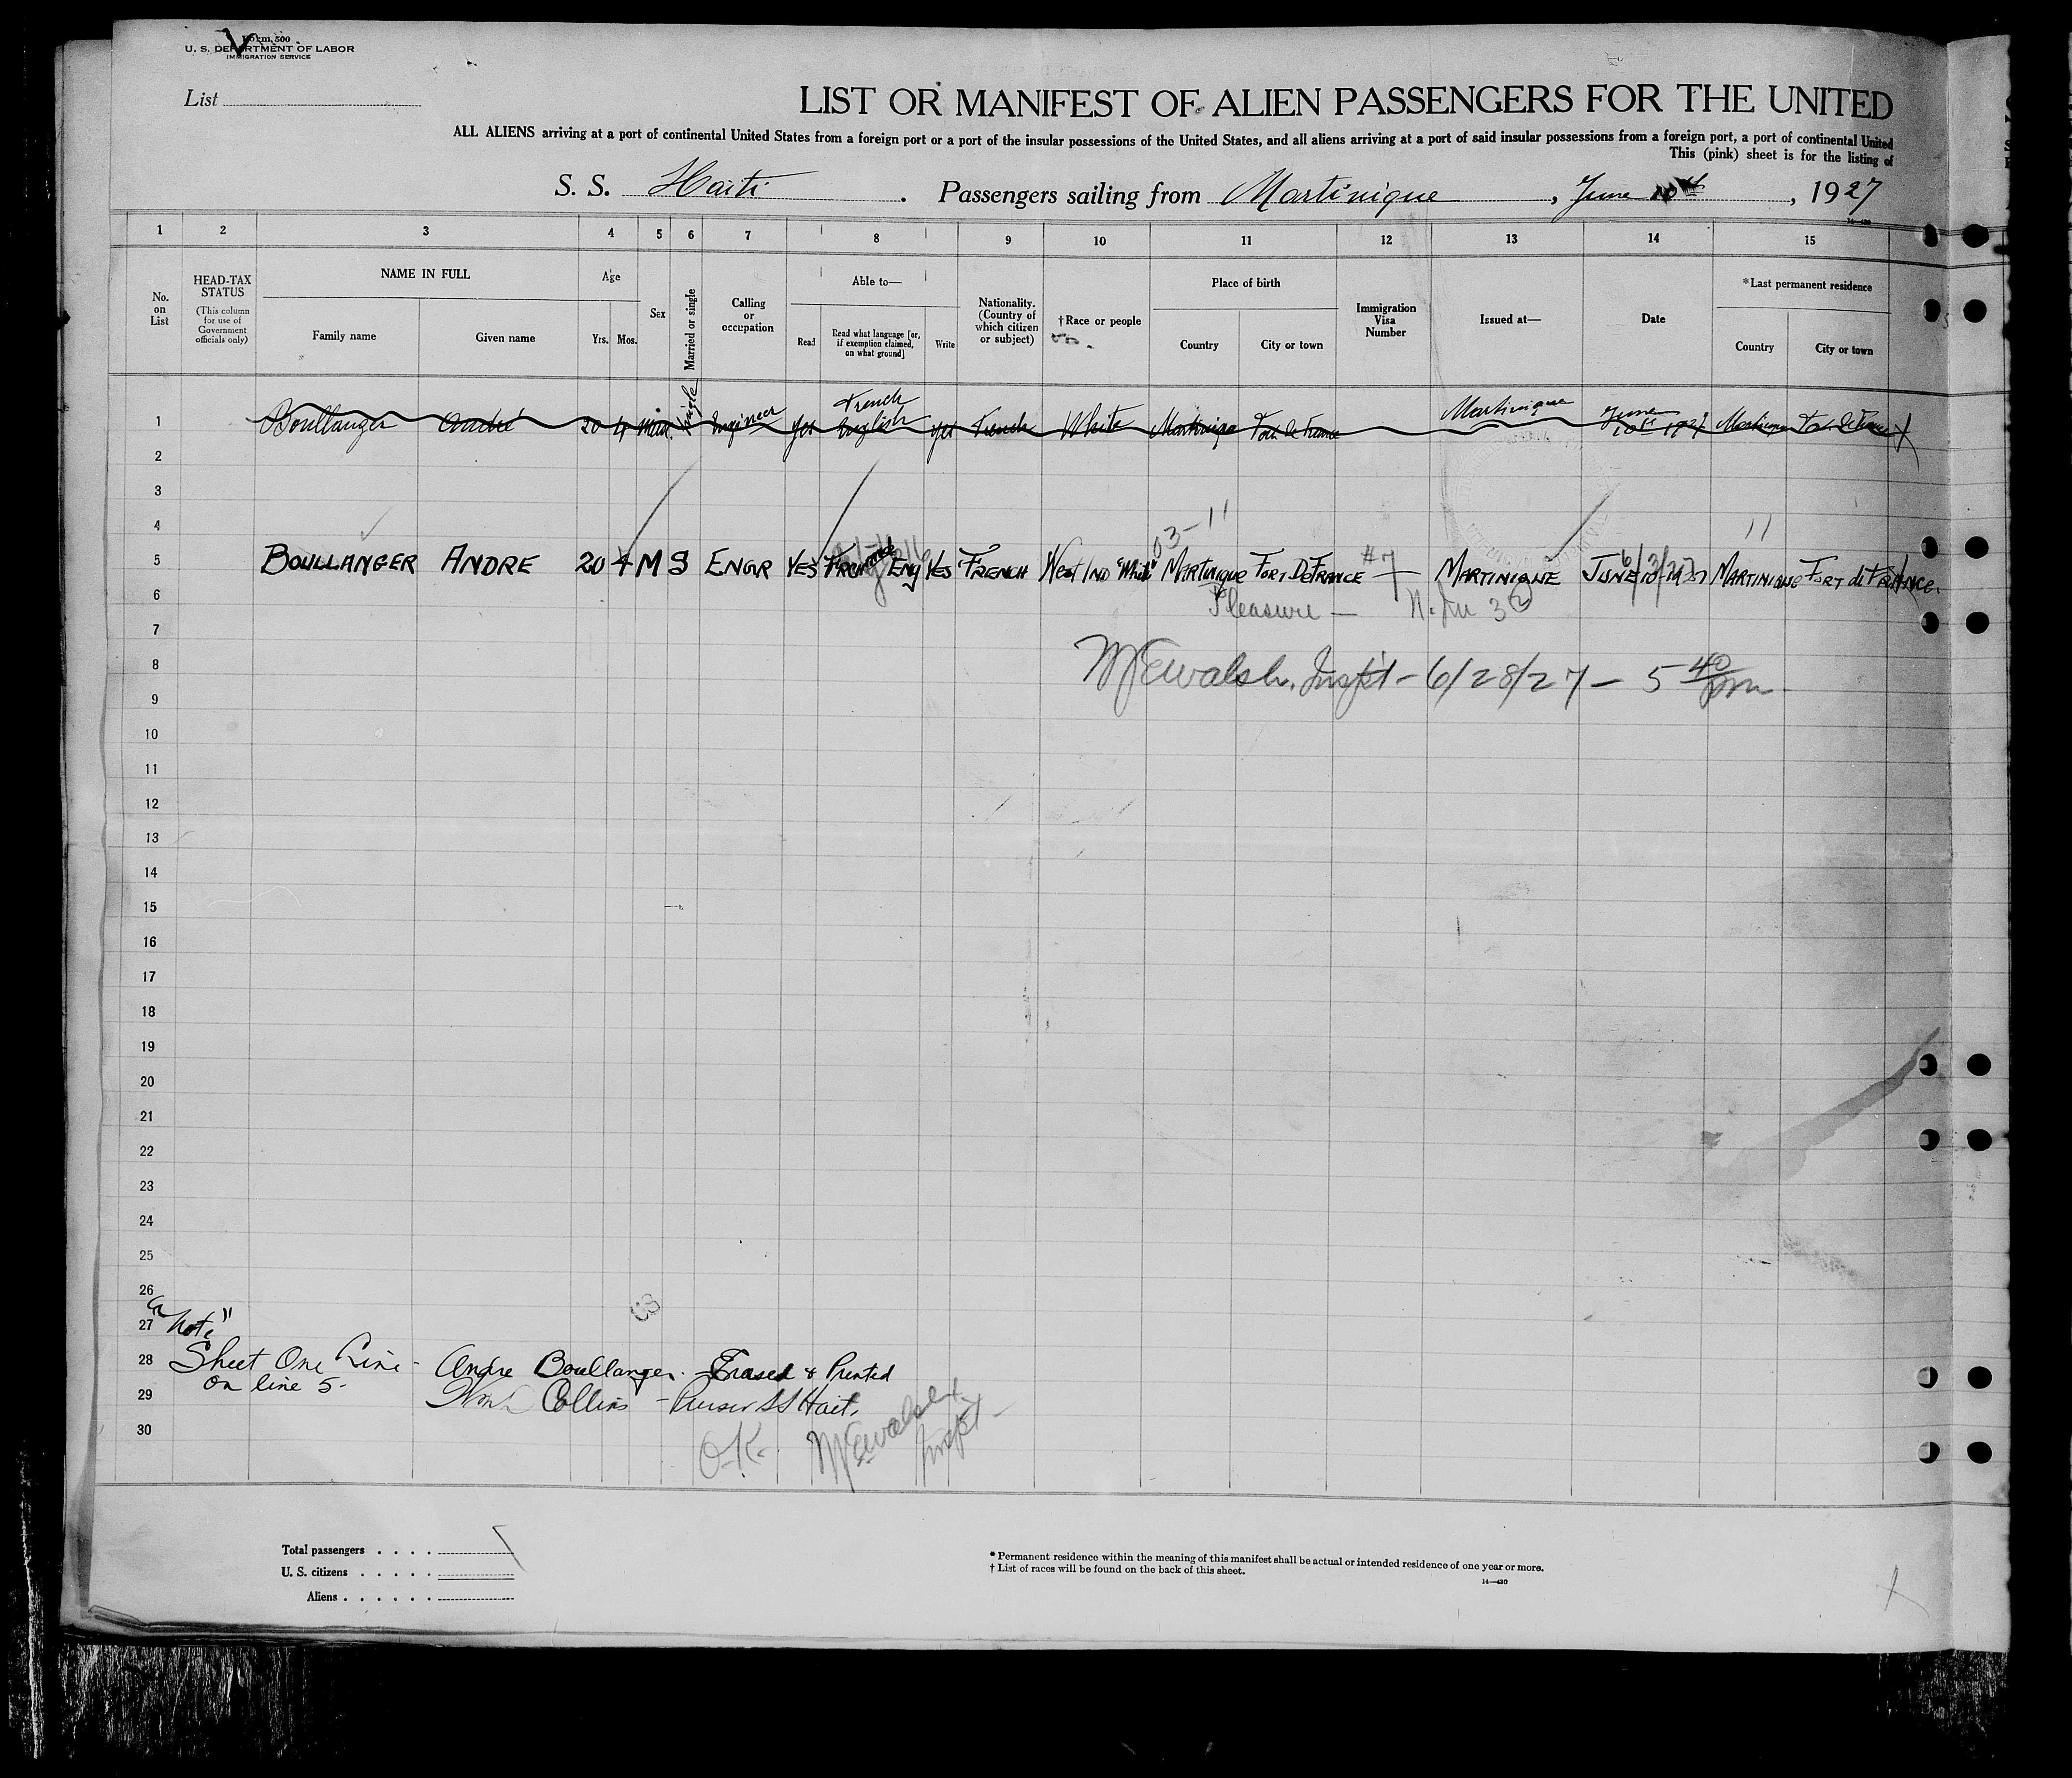 Form 500
U. S. DEPARTMENT OF LABOR
IMMIGRATION SERVICE
List
LIST OR MANIFEST OF ALIEN PASSENGERS FOR THE UNITED
ALL ALIENS arriving at a port of continental United States from a foreign port or a port of the insular possessions of the United States, and all aliens arriving at a port of said insular possessions from a foreign port, a port of continental United
This (pink) sheet is for the listing of
S. S. Haiti . Passengers sailing from Martinique , June 10th , 1927
14—430
1 2 3 4 5 6 7 8 9 10 11 12 13 14 15
No. on List
HEAD-TAX STATUS
(This column for use of Government officials only)
NAME IN FULL
Family name Given name
Age
Yrs. Mos.
Sex
Married or single
Calling or occupation
Able to—
Read
Read what language [or, if exemption claimed, on what ground]
Write
Nationality. (Country of which citizen or subject)
†Race or people
Place of birth
Country City or town
Immigration Visa Number
Issued at—
Date
*Last permanent residence
Country City or town
1 Boullanger André 20 4 Single Engineer yes French English yes French White Martinique Fort de France Martinique June 10th 1927 Martinique Fort de France X
2
3
4
03-11 11
5 BOULLANGER ANDRE 20 4 M S ENGR YES and ENG YES FRENCH West IND "White" MARTINIQUE FORT DEFRANCE #7 MARTINIQUE JUNE MARTINIQUE FORT de FRANCE.
6 Pleasure —
7
8 Walsh. Inspt - 6/28/27 - 5 40 pm
9
10
11
12
13
14
15
16
17
18
19
20
21
22
23
24
25
26
27 "Note"
28 Sheet One Line - Andre Boullanger. Erased & Printed
on line 5-
29 Collins - Purser SS Haiti
30 O.K. Walsh Inspt -
Total passengers . . . .
U. S. citizens . . . . .
Aliens . . . . . .
* Permanent residence within the meaning of this manifest shall be actual or intended residence of one year or more.
† List of races will be found on the back of this sheet.
14—430